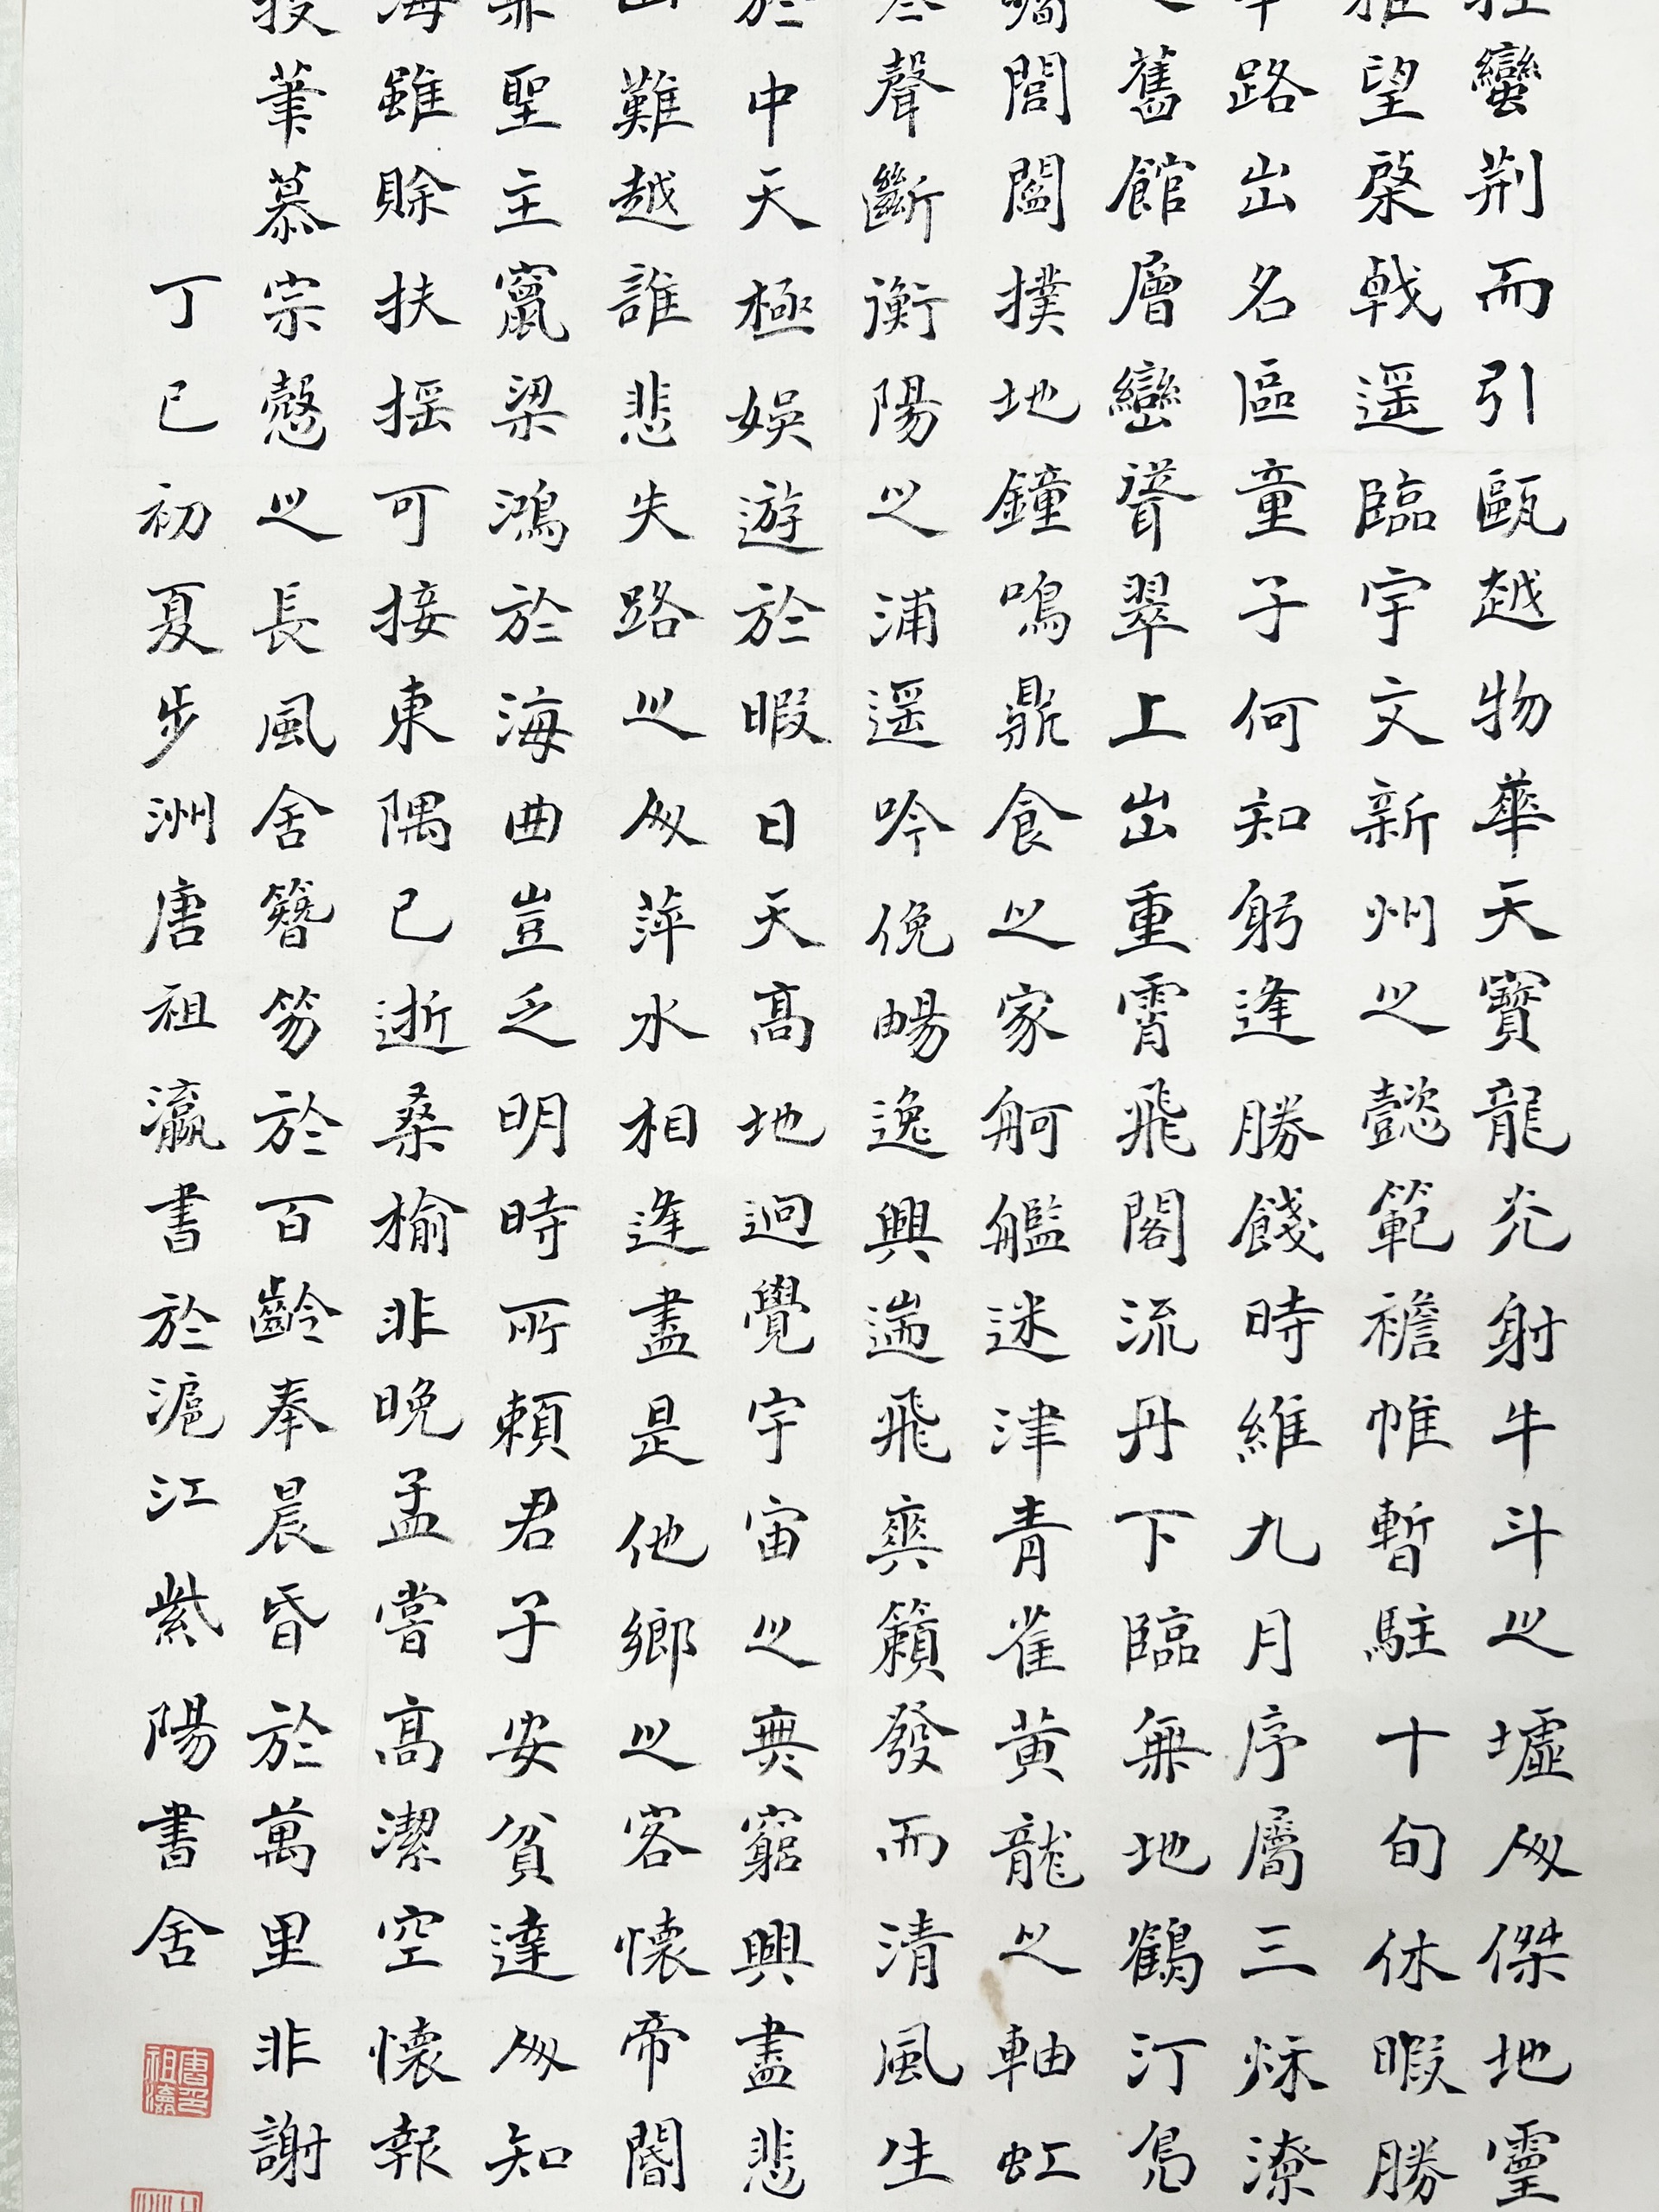 蠻荆而引甌越物華天寶龍光射牛斗之墟人傑地靈
雅望棨戟遥臨宇文新州之懿範襜帷暫駐十旬休暇勝
路出名區童子何知躬逢勝餞時維九月序屬三秌潦
舊館層巒聳翠上出重霄飛閣流丹下臨無地鶴汀鳧
閭閻撲地鐘鳴鼎食之家舸艦迷津青雀黄龍之軸虹
聲斷衡陽之浦遥吟俛暢逸興遄飛爽籟發而清風生
於中天極娛遊於暇日天高地迥覺宇宙之無窮興盡悲
山難越誰悲失路之人萍水相逢盡是他鄉之客懷帝閽
非聖主竄梁鴻於海曲豈乏明時所賴君子安貧達人知
海雖賖扶揺可接東隅已逝桑榆非晚孟嘗高潔空懷報
投筆慕宗慤之長風舍簪笏於百齡奉晨昏於萬里非謝
丁巳初夏步洲唐祖瀛書於滬江紫陽書舍
唐祖瀛印